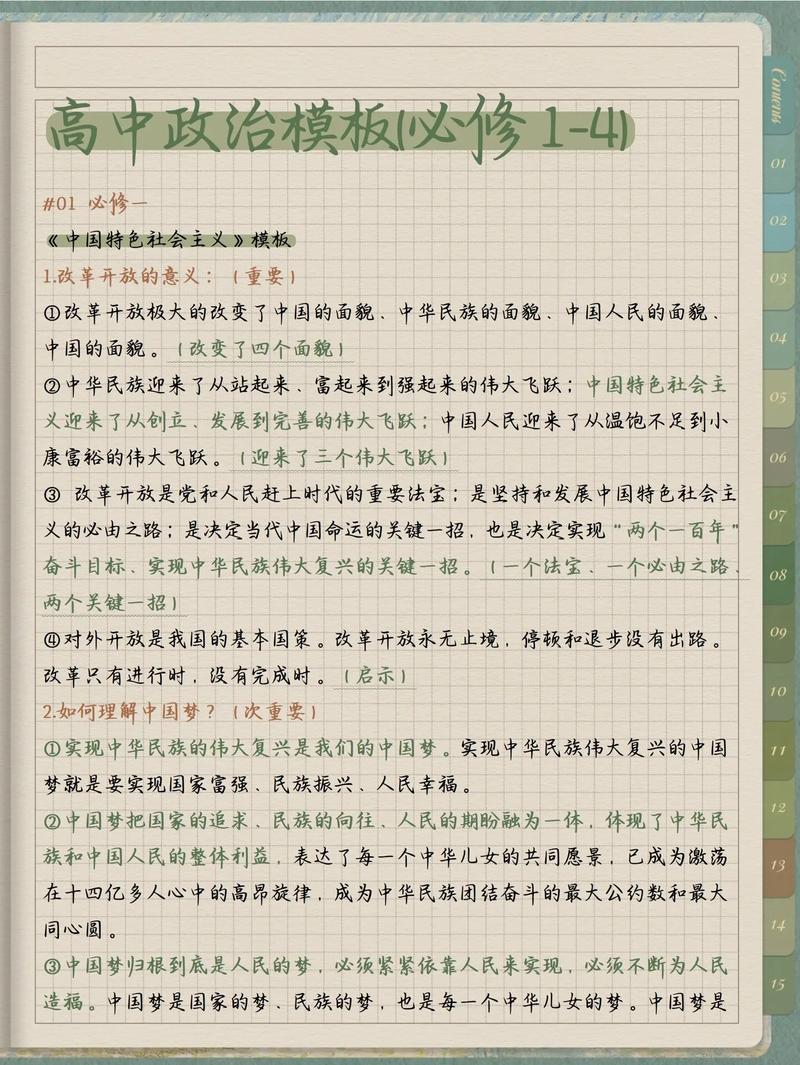 高中政治模板(必修1-4)
Contents
01
02
03
04
05
06
07
08
09
10
11
12
13
14
15
#01 必修一
《中国特色社会主义》模板
1.改革开放的意义：（重要）
①改革开放极大的改变了中国的面貌、中华民族的面貌、中国人民的面貌、
中国的面貌。（改变了四个面貌）
②中华民族迎来了从站起来、富起来到强起来的伟大飞跃；中国特色社会主
义迎来了从创立、发展到完善的伟大飞跃；中国人民迎来了从温饱不足到小
康富裕的伟大飞跃。（迎来了三个伟大飞跃）
③ 改革开放是党和人民赶上时代的重要法宝；是坚持和发展中国特色社会主
义的必由之路；是决定当代中国命运的关键一招，也是决定实现“两个一百年”
奋斗目标、实现中华民族伟大复兴的关键一招。（一个法宝、一个必由之路、
两个关键一招）
④对外开放是我国的基本国策。改革开放永无止境，停顿和退步没有出路。
改革只有进行时，没有完成时。（启示）
2.如何理解中国梦？（次重要）
①实现中华民族的伟大复兴是我们的中国梦。实现中华民族伟大复兴的中国
梦就是要实现国家富强、民族振兴、人民幸福。
②中国梦把国家的追求、民族的向往、人民的期盼融为一体，体现了中华民
族和中国人民的整体利益，表达了每一个中华儿女的共同愿景，已成为激荡
在十四亿多人心中的高昂旋律，成为中华民族团结奋斗的最大公约数和最大
同心圆。
③中国梦归根到底是人民的梦，必须紧紧依靠人民来实现，必须不断为人民
造福。中国梦是国家的梦、民族的梦，也是每一个中华儿女的梦。中国梦是